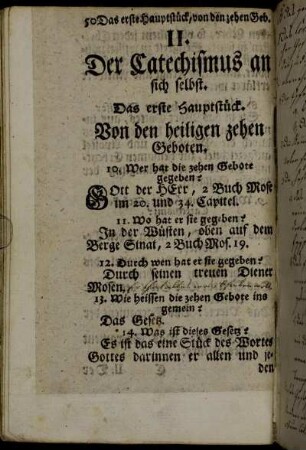 50 Das erste Hauptstück, von den zehen Geb.
II.
Der Catechismus an
sich selbst.
Das erste Hauptstück.
Von den heiligen zehen
Geboten.
10. Wer hat die zehen Gebote
gegeben?
GOtt der HErr, 2 Buch Mose
im 20. und 34. Capitel.
11. Wo hat er sie gegeben?
In der Wüsten, oben auf dem
Berge Sinai, 2 Buch Mos. 19.
12. Durch wen hat er sie gegeben?
Durch seinen treuen Diener
Mosen.
13. Wie heissen die zehen Gebote ins
gemein?
Das Gesetz.
14. Was ist dieses Gesetz?
Es ist das eine Stück des Wortes
Gottes darinnen er allen und je-
den